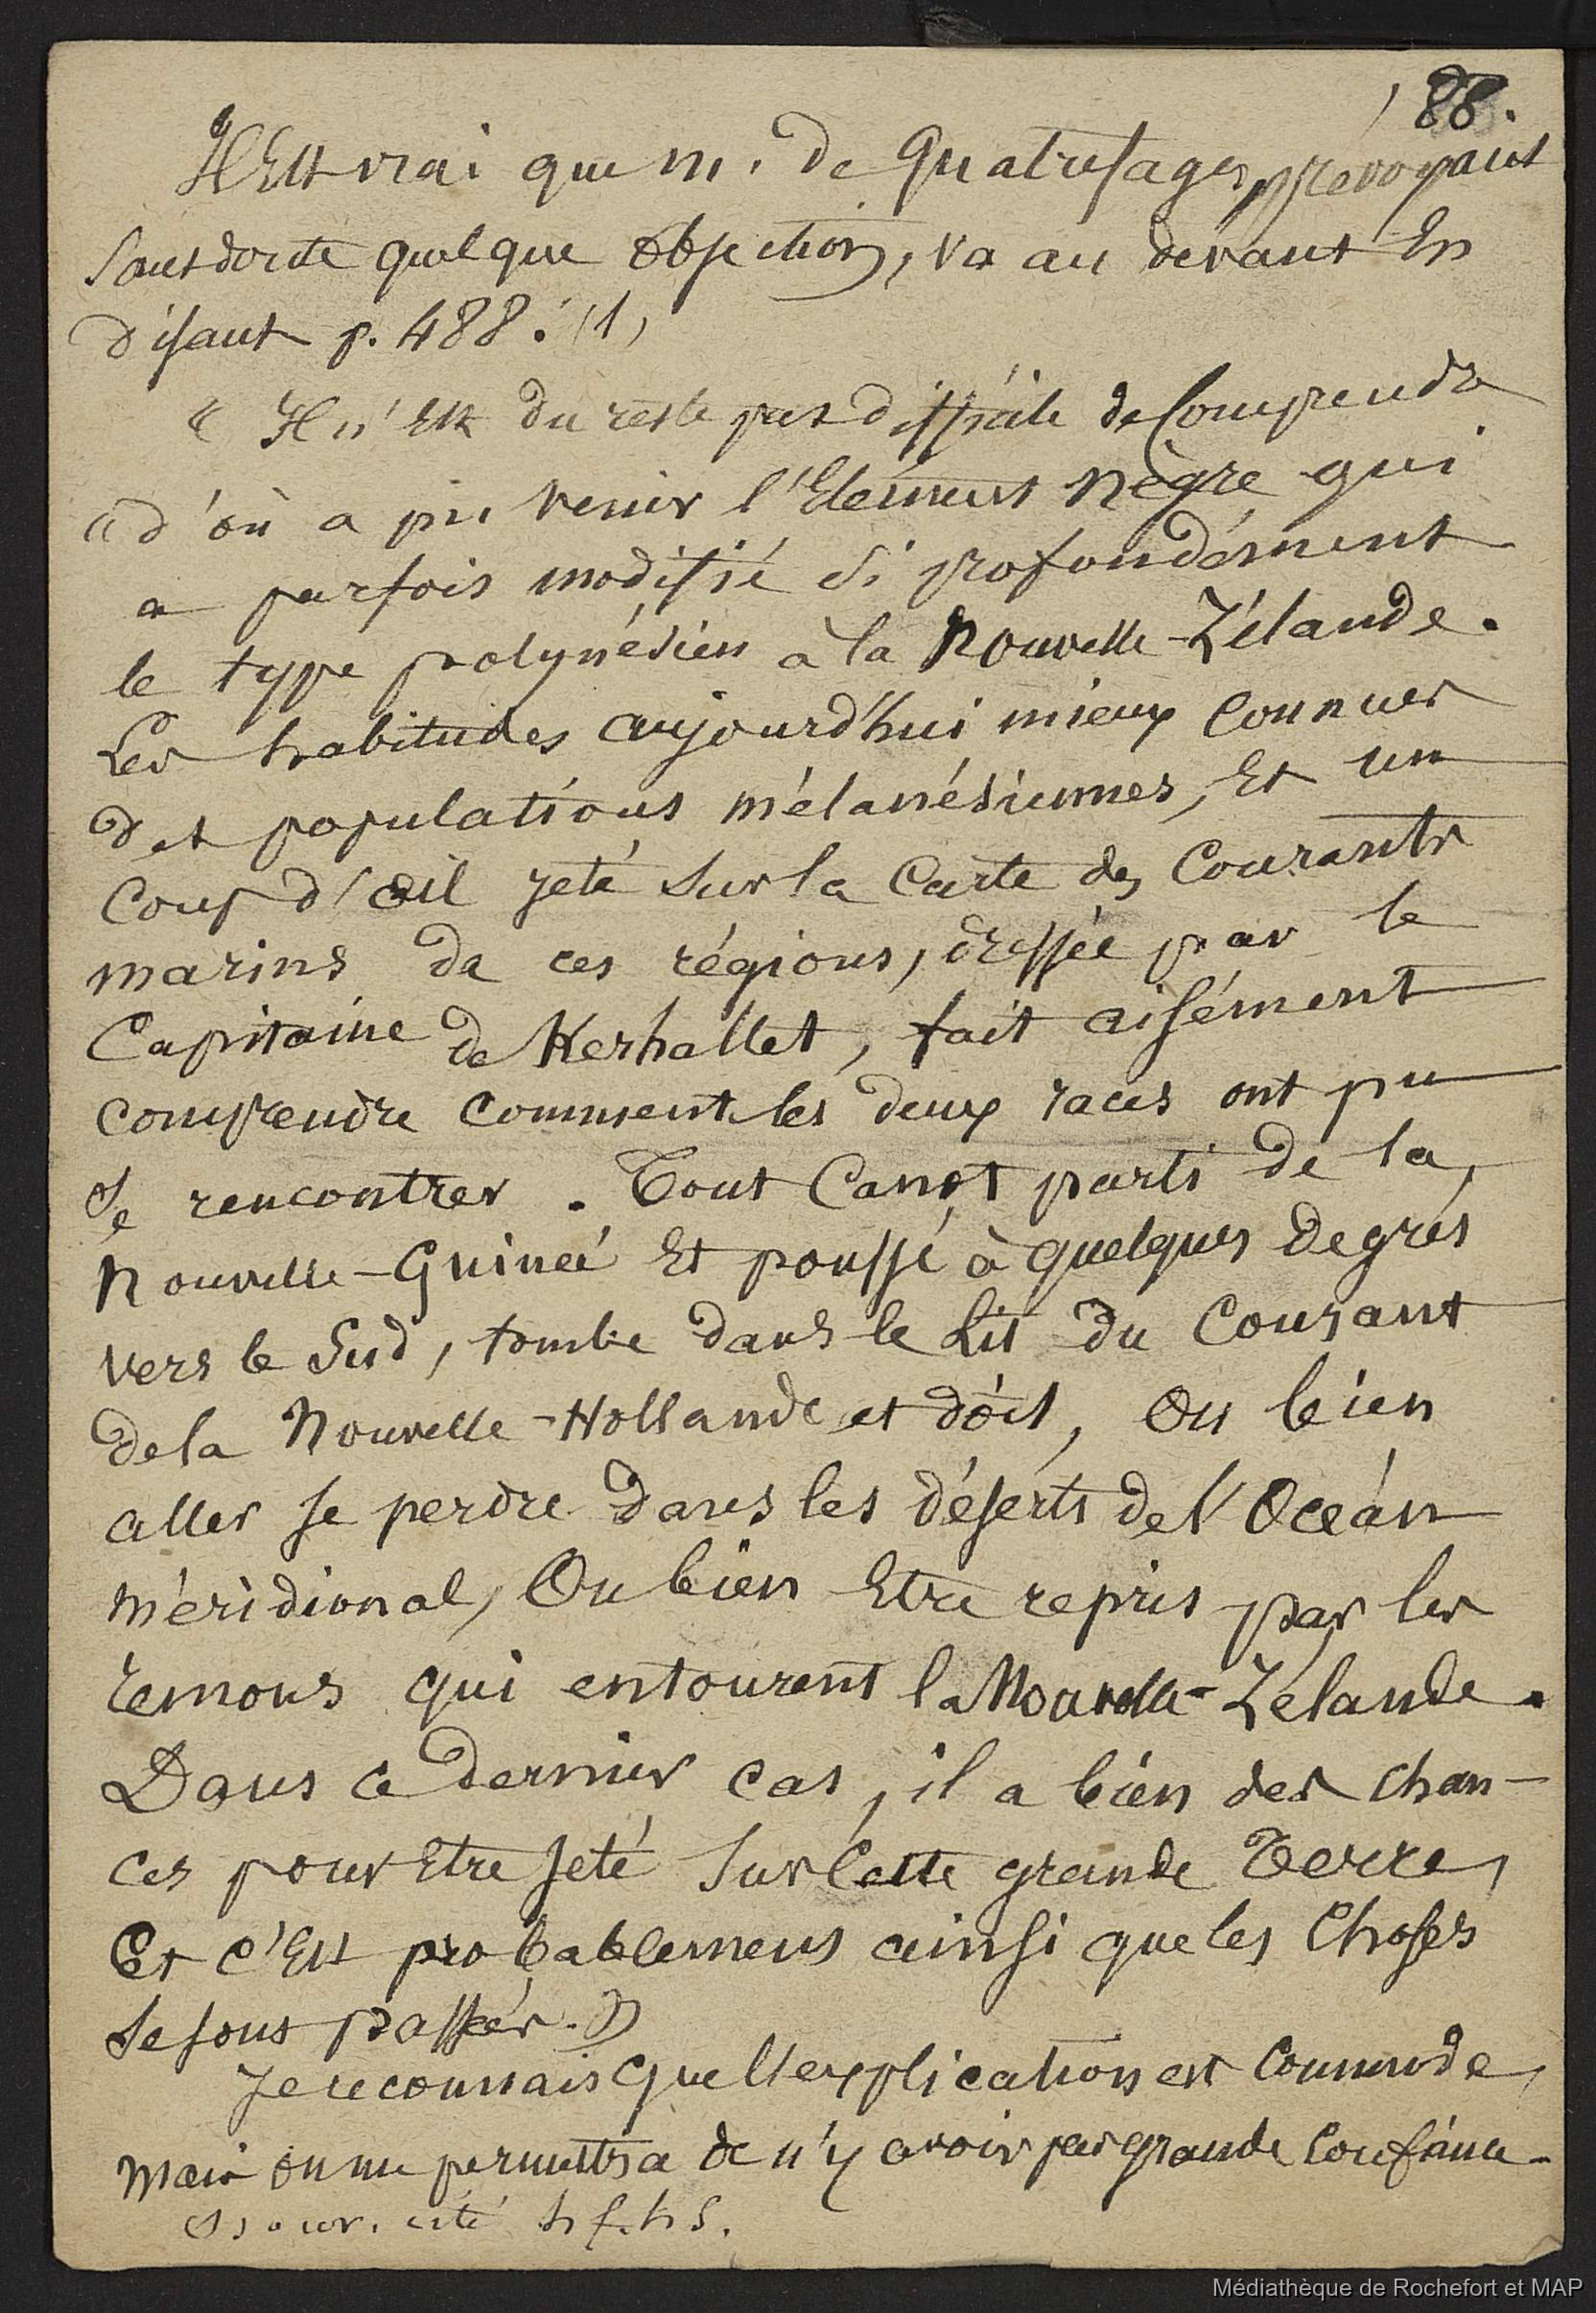 88.
Il Est vrai que m. de Quatrefages, prévoyant
sans doute quelque objection, va au devant En
disant p. 488. (1)
« Il n'Est du reste pas difficile de Comprendre
« d'où a pu venir l'Elément nègre qui
a parfois modifié si profondément
le type polynésien à la Nouvelle-Zélande.
Les habitudes aujourd'hui mieux connues
des populations mélanésiennes, Et un
Coup d'œil jeté sur la Carte des Courants
marins de ces régions, dressée par le
Capitaine de Kerhallet, fait aisément
comprendre comment les deux races ont pu
se rencontrer. Tout Canot parti de la
Nouvelle-Guinée Et poussé à quelques degrés
vers le Sud, tombe dans le Lit du Courant
de la Nouvelle-Hollande et doit, Ou bien
aller se perdre dans les déserts de l'Océan
méridional, Ou bien Etre repris par les
remous qui entourent la Nouvelle-Zélande.
Dans ce dernier cas, il a bien des chan-
ces pour Etre jeté sur Cette grande Terre,
Et c'Est probablement ainsi que les Choses
se sont passées. »
Je reconnais que l'explication est Commode,
mais on me permettra de n'y avoir pas grande Confiance.
(1) ouv. cité
Médiathèque de Rochefort et MAP